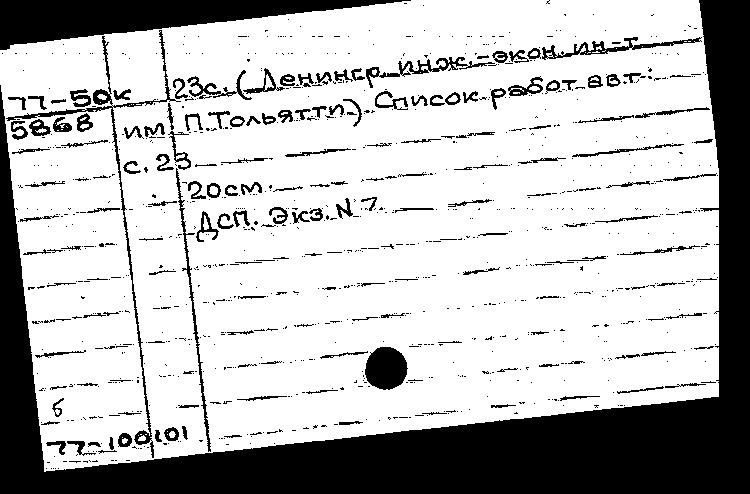 77-50к 23с. (Ленингр. инж.-экон. ин-т
5868 им. П.Тольятти). Список работ авт.:
с. 23
20см.
ДСП. Экз. N 7.
б
77-100101